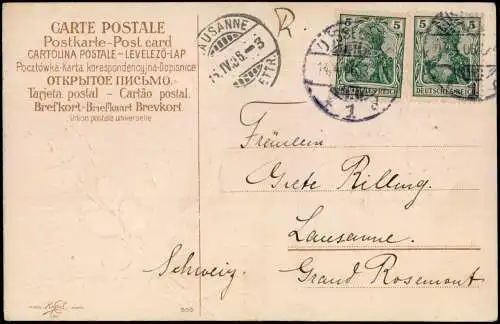 CARTE POSTALE
Postkarte-Post card
CARTOLINA POSTALE-LEVELEZŐ-LAP
Pocztówka-Karta korespondencyjna-Dopisnice
ОТКРЫТОЕ ПИСЬМО.
Tarjeta postal - Cartão postal.
Brefkort-Briefkaart Brevkort.
Union postale universelle
LAUSANNE
14.IV.06.-8
R.
5 5
5 5
DEUTSCHES REICH
DEUTSCHES REICH
1
Fräulein
Grete Rilling.
Lausanne.
Schweiz
Grand Rosemont.